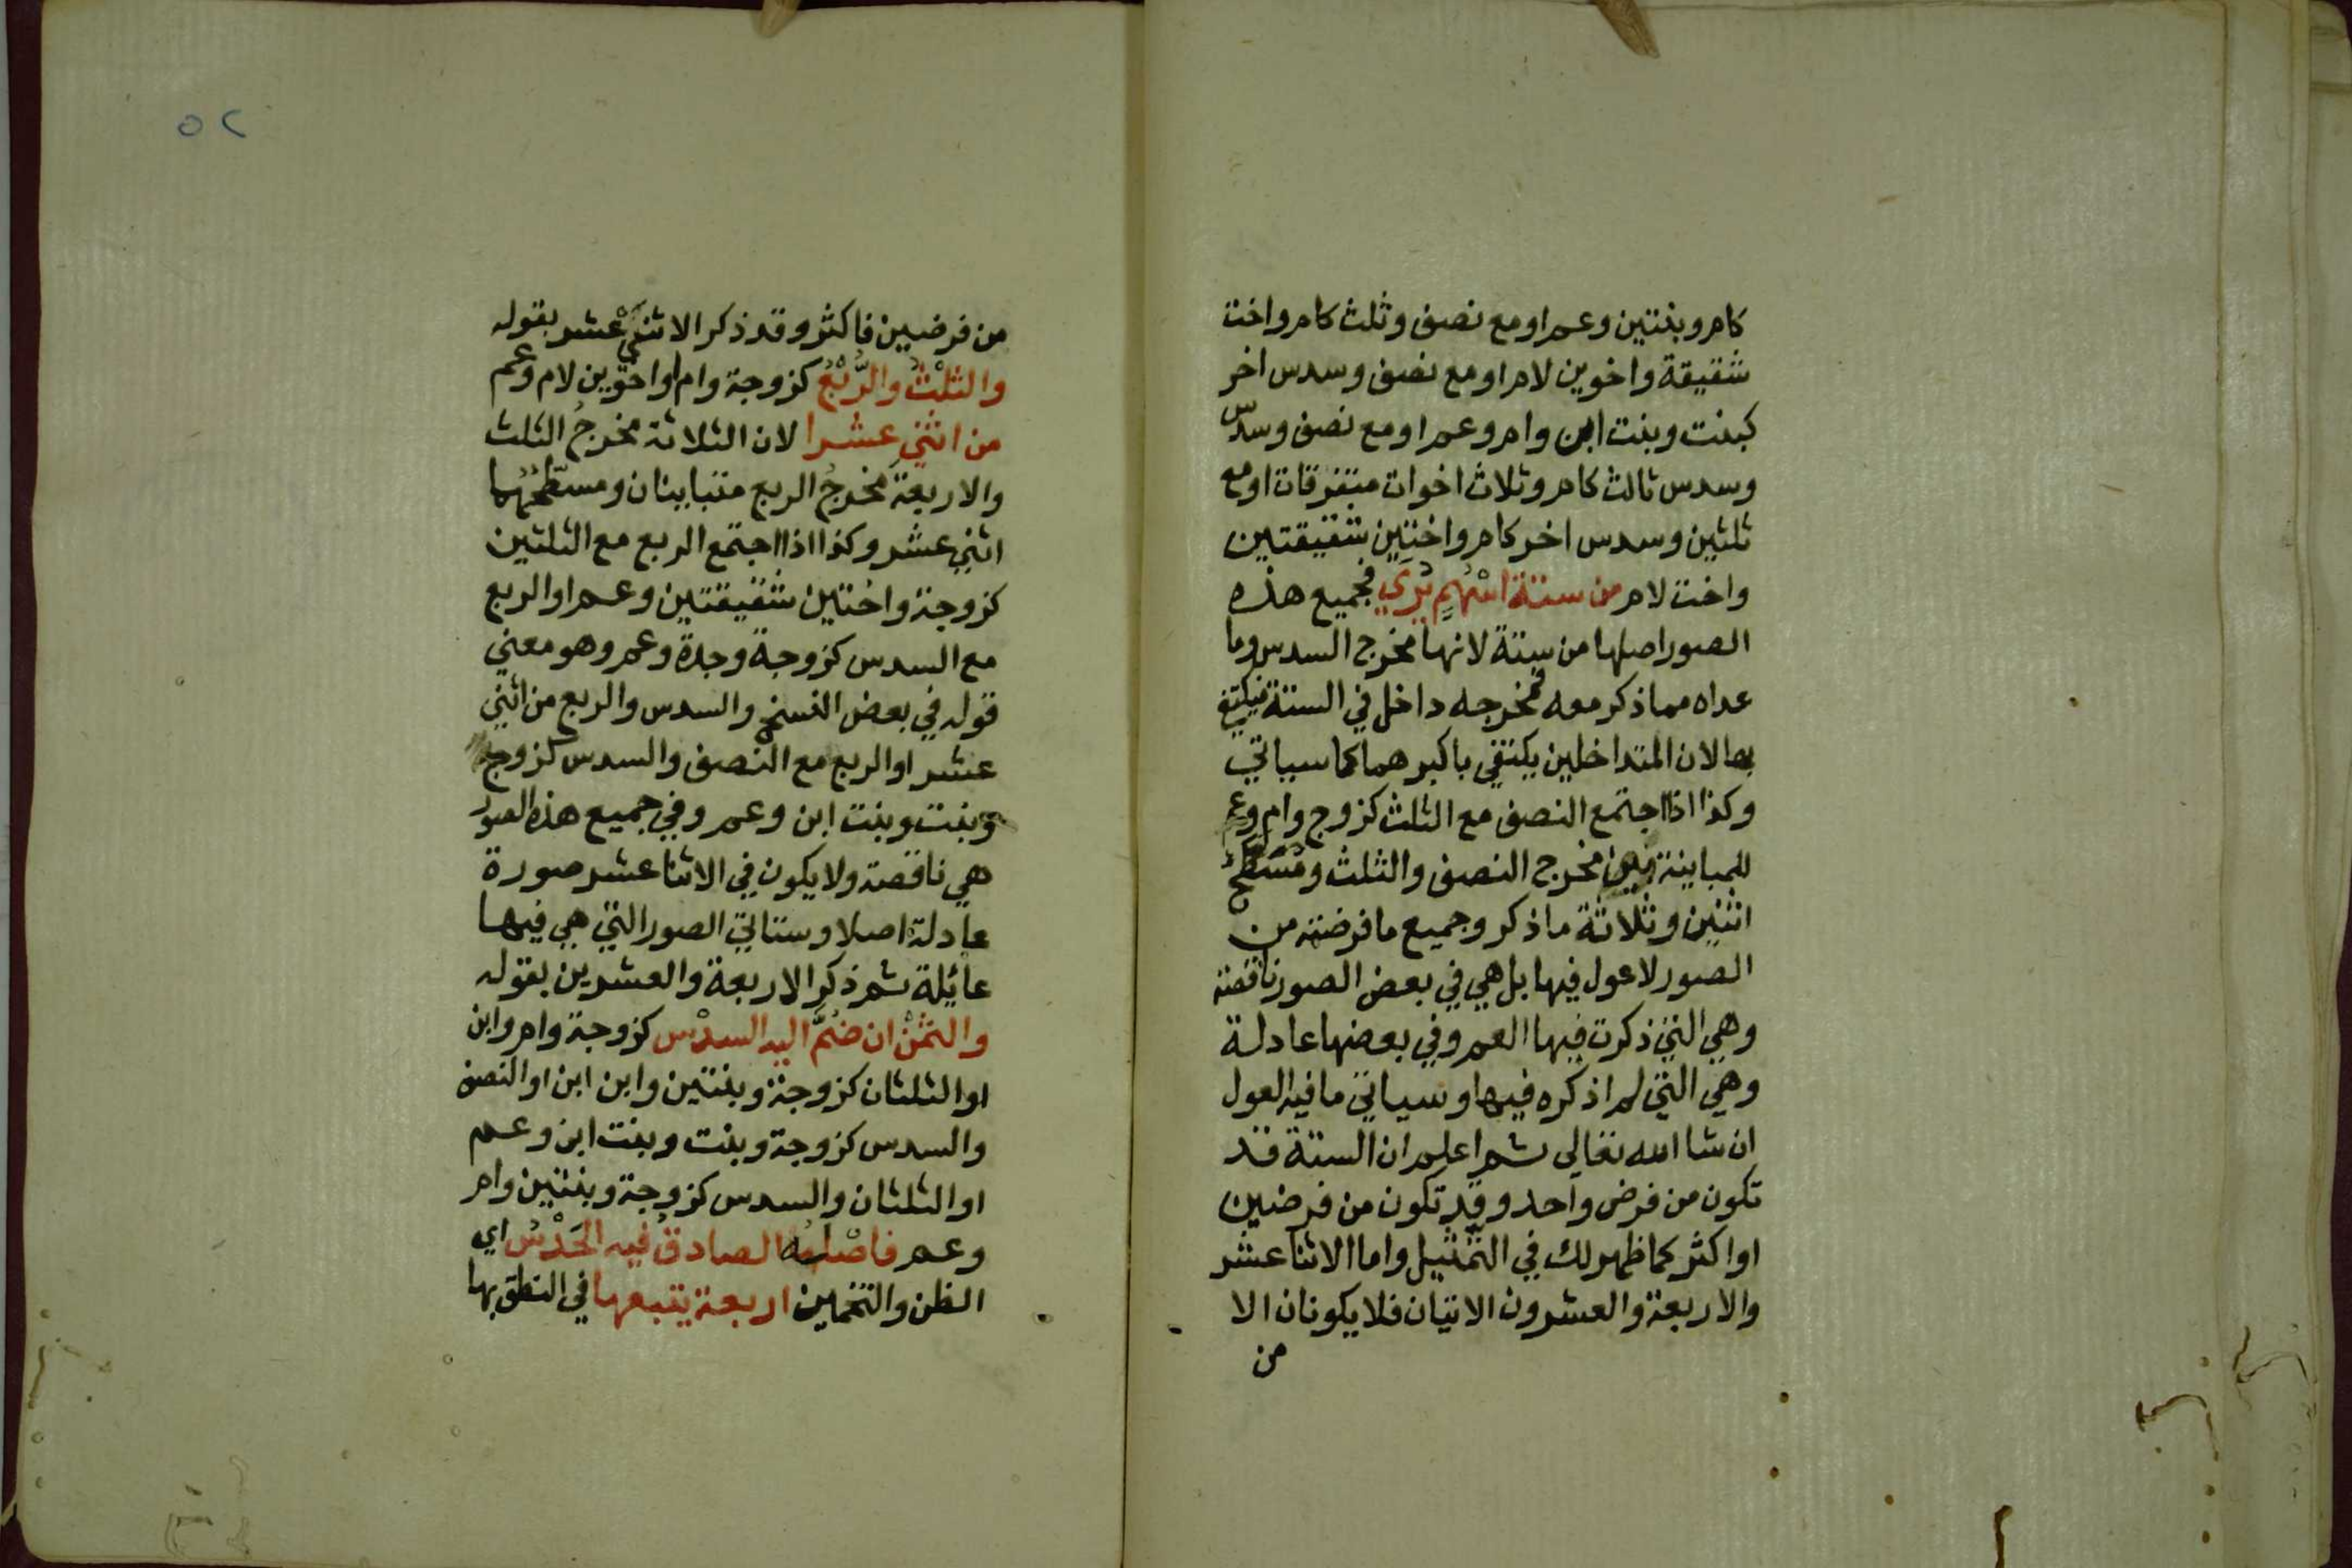 كام وبنتين وعم او مع نصف وثلث كام واخت
شقيقة واخوين لام او مع نصف وسدس اخر
كبنت وبنت ابن وام وعم او مع نصف وسدس
وسدس ثالث كام وثلاث اخوات متفرقات او مع
ثلثين وسدس اخر كام واختين شقيقتين
واخت لام من ستة اسْهُمٍ يُرَي فجميع هذه
الصور اصلها من ستة لانها مخرج السدس وما
عداه مما ذكر معه فمخرجه داخل في الستة فيكتفي
بها لان المتداخلين يكتفي باكبرهما كما سياتي
وكذا اذا اجتمع النصف مع الثلث كزوج وام وعم
للمباينة بين مخرج النصف والثلث ومُسَطّح
اثنين وثلاثة ما ذكر وجميع ما فرضته من
الصور لا عول فيها بل هي في بعض الصور ناقصة
وهي التي ذكرت فيها العم وفي بعضها عادلة
وهي التي لم اذكره فيها وسياتي ما فيه العول
ان شا الله تعالي ثم اعلم ان الستة قد
تكون من فرض واحد وقد تكون من فرضين
او اكثر كما ظهر لك في التمثيل واما الاثنا عشر
والاربعة والعشرون الاتيان فلا يكونان الا
من
٥٢
من فرضين فاكثر وقد ذكر الاثني عشر بقوله
والثلْثُ والرُّبْعُ كزوجة وام او اخوين لام وعم
من اثني عشرا لان الثلاثة مخرجُ الثلث
والاربعة مخرجُ الربع متباينان ومسطّحُهُما
اثني عشر وكذا اذا اجتمع الربع مع الثلثين
كزوجة واختين شقيقتين وعم او الربع
مع السدس كزوجة وجدة وعم وهو معني
قوله في بعض النسخ والسدس والربع من اثني
عشر او الربع مع النصف والسدس كزوج
وبنت وبنت ابن وعم وفي جميع هذه الصور
هي ناقصة ولا يكون في الاثنا عشر صورة
عادلة اصلا وستاتي الصور التي هي فيها
عائلة ثم ذكر الاربعة والعشرين بقوله
والثمْنُ ان ضُمَّ اليه السدْس كزوجة وام وابن
او الثلثان كزوجة وبنتين وابن ابن او النصف
والسدس كزوجة وبنت وبنت ابن وعم
او الثلثان والسدس كزوجة وبنتين وام
وعم فاصْلُهُ الصادقُ فيه الحَدْسُ اي
الظن والتخمين اربعة يتبعها في النطق بها